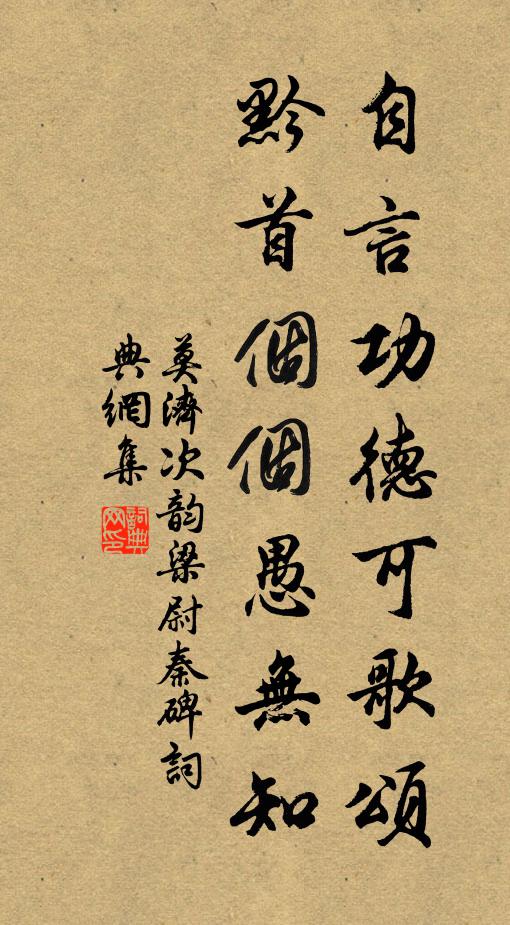 自言功德可歌頌
黔首個個愚無知
莫濟次韵梁尉秦碑詞
典網集
詞典网印